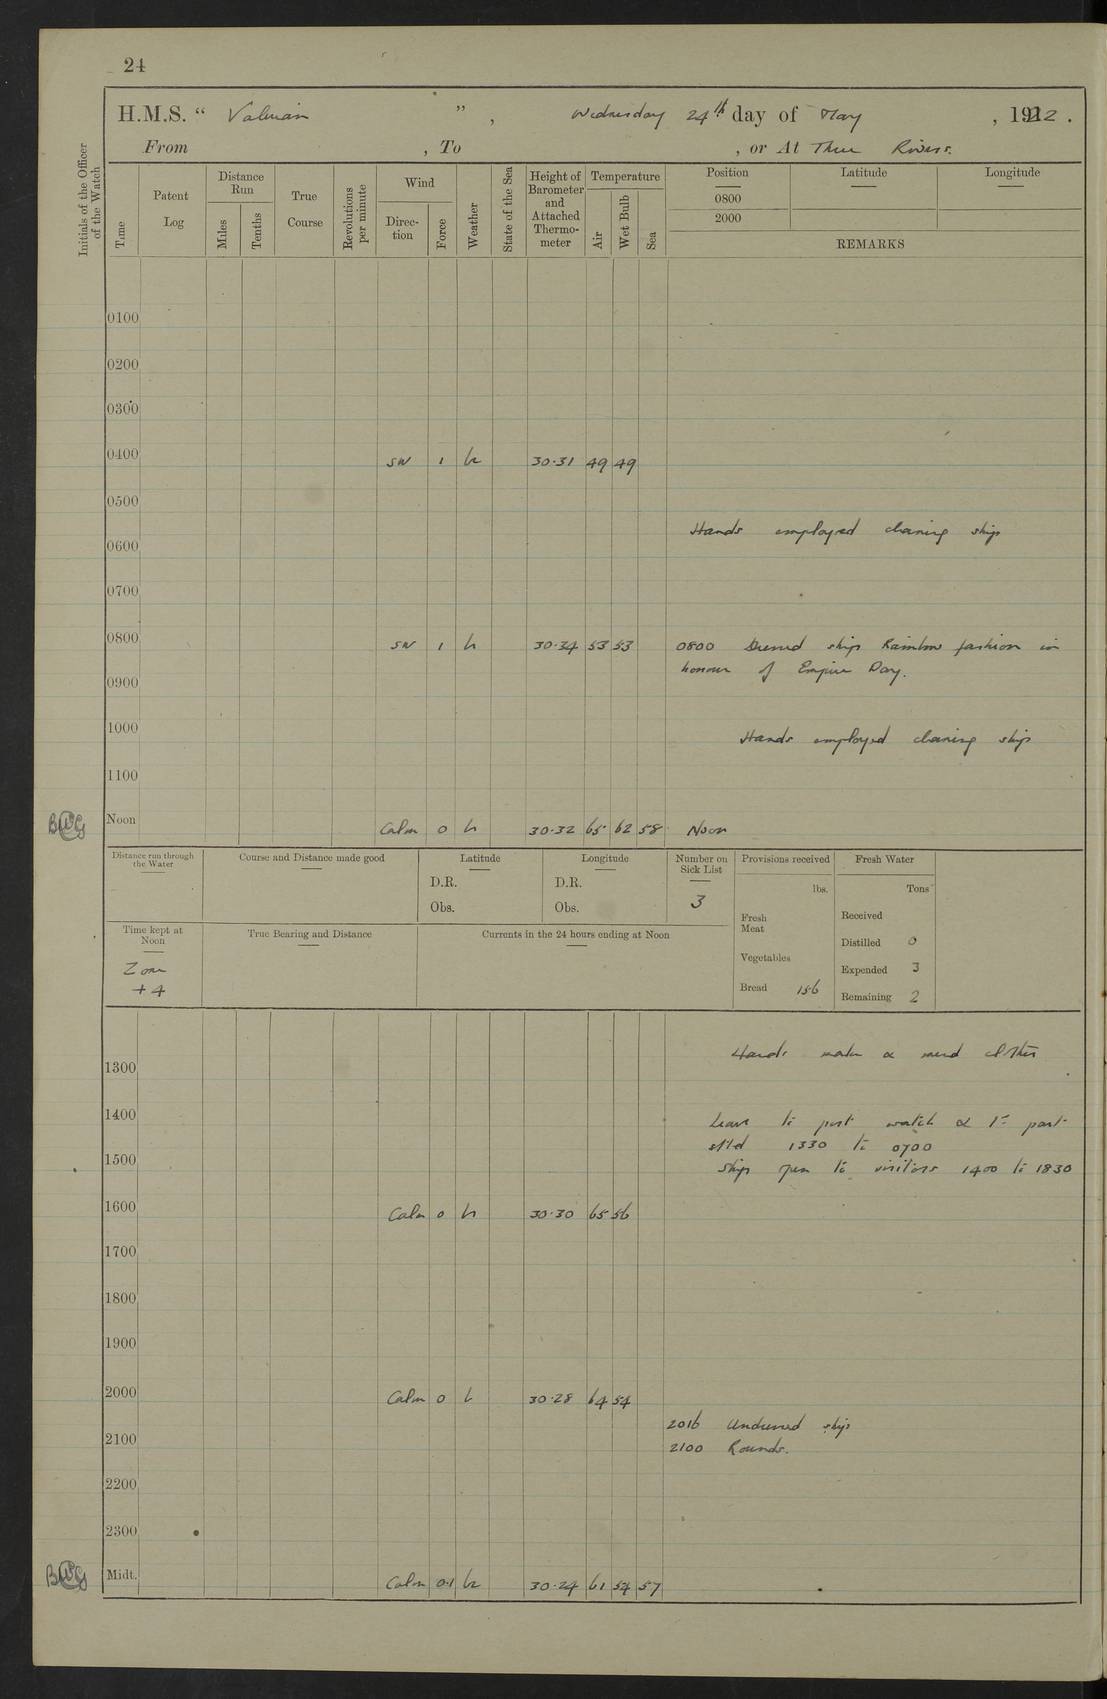 24
H.M.S. “ Valerian ” , Wednesday 24th day of May , 1922 .
From , To , or At Three Rivers.
Initials of the Officer of the Watch
Time
Patent Log
Distance Run
Miles
Tenths
True Course
Revolutions per minute
Wind
Direc-tion
Force
Weather
State of the Sea
Height of Barometer and Attached Thermo-meter
Temperature
Air
Wet Bulb
Sea
Position Latitude Longitude
0800
2000
REMARKS
0100
0200
0300
0400 SW 1 bc 30.31 49 49
0500
Hands employed cleaning ship
0600
0700
0800 SW 1 b 30.34 53 53 0800 Dressed ship Rainbow fashion in
honour of Empire Day.
0900
1000 Hands employed cleaning ship
1100
BWG Noon Calm 0 b 30.32 65 62 58 Noon
Distance run through the Water
Course and Distance made good
Latitude
D.R.
Obs.
Longitude
D.R.
Obs.
Number on Sick List
3
Provisions received
lbs.
Fresh Meat
Vegetables
Bread 156
Fresh Water
Tons
Received
Distilled 0
Expended 3
Remaining 2
Time kept at Noon
Zone
+4
True Bearing and Distance
Currents in the 24 hours ending at Noon
Hands make & mend clothes
1300
1400 Leave to port watch & 1st part
stbd 1330 to 0700
1500 Ship open to visitors 1400 to 1830
1600 Calm 0 b 30.30 65 56
1700
1800
1900
2000 Calm 0 b 30.28 64 54
2016 Undressed ship
2100 2100 Rounds.
2200
2300
BWG Midt. Calm 0.1 bc 30.24 61 54 57